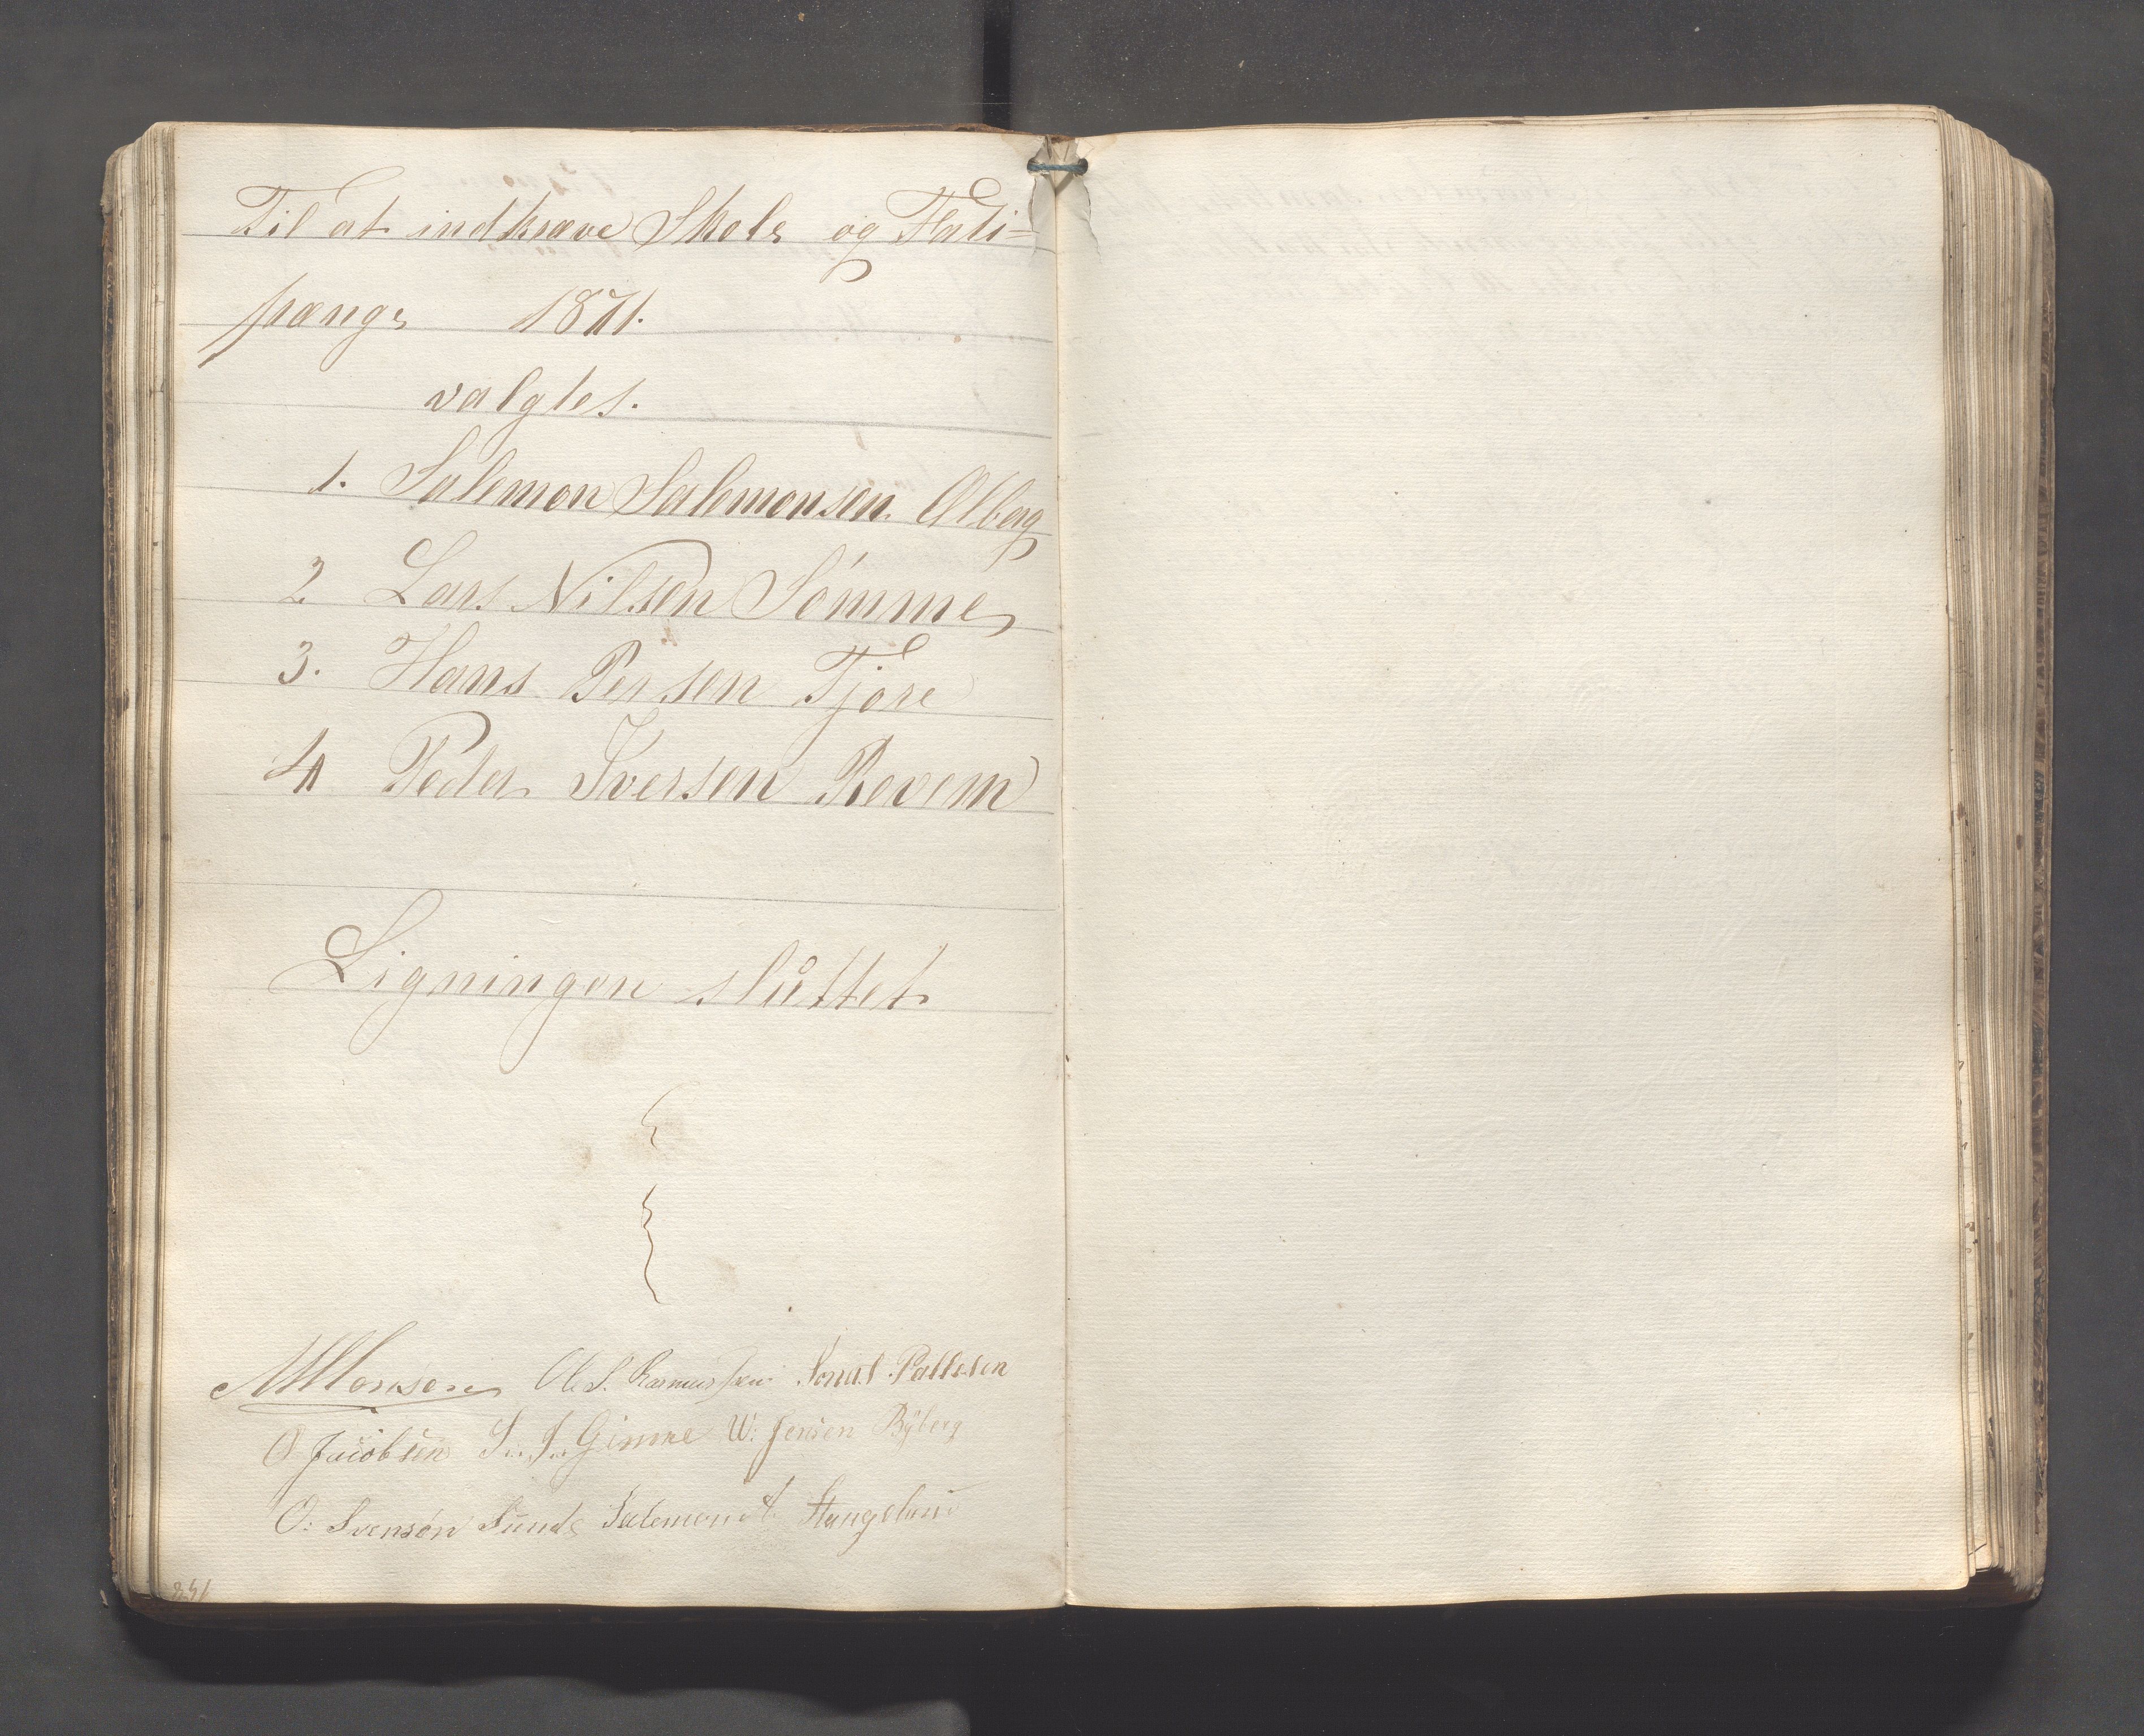 Til at indkræve Skole og Fatti=
pænge 1871.
valgtes.
1. Salemon Salemonsen Ølberg
2 Lars Nilsen Sømme
3. Hans Persen Tjore
4 Peder Iversen Revem
Ligningen slŭttet
MMonsen Ole S. Rasmussen Jonas Pallesen
O Jacobsen S. J. Gimre W: Jensen Bÿberg
O: Svensøn Sunde Salemon Stangeland